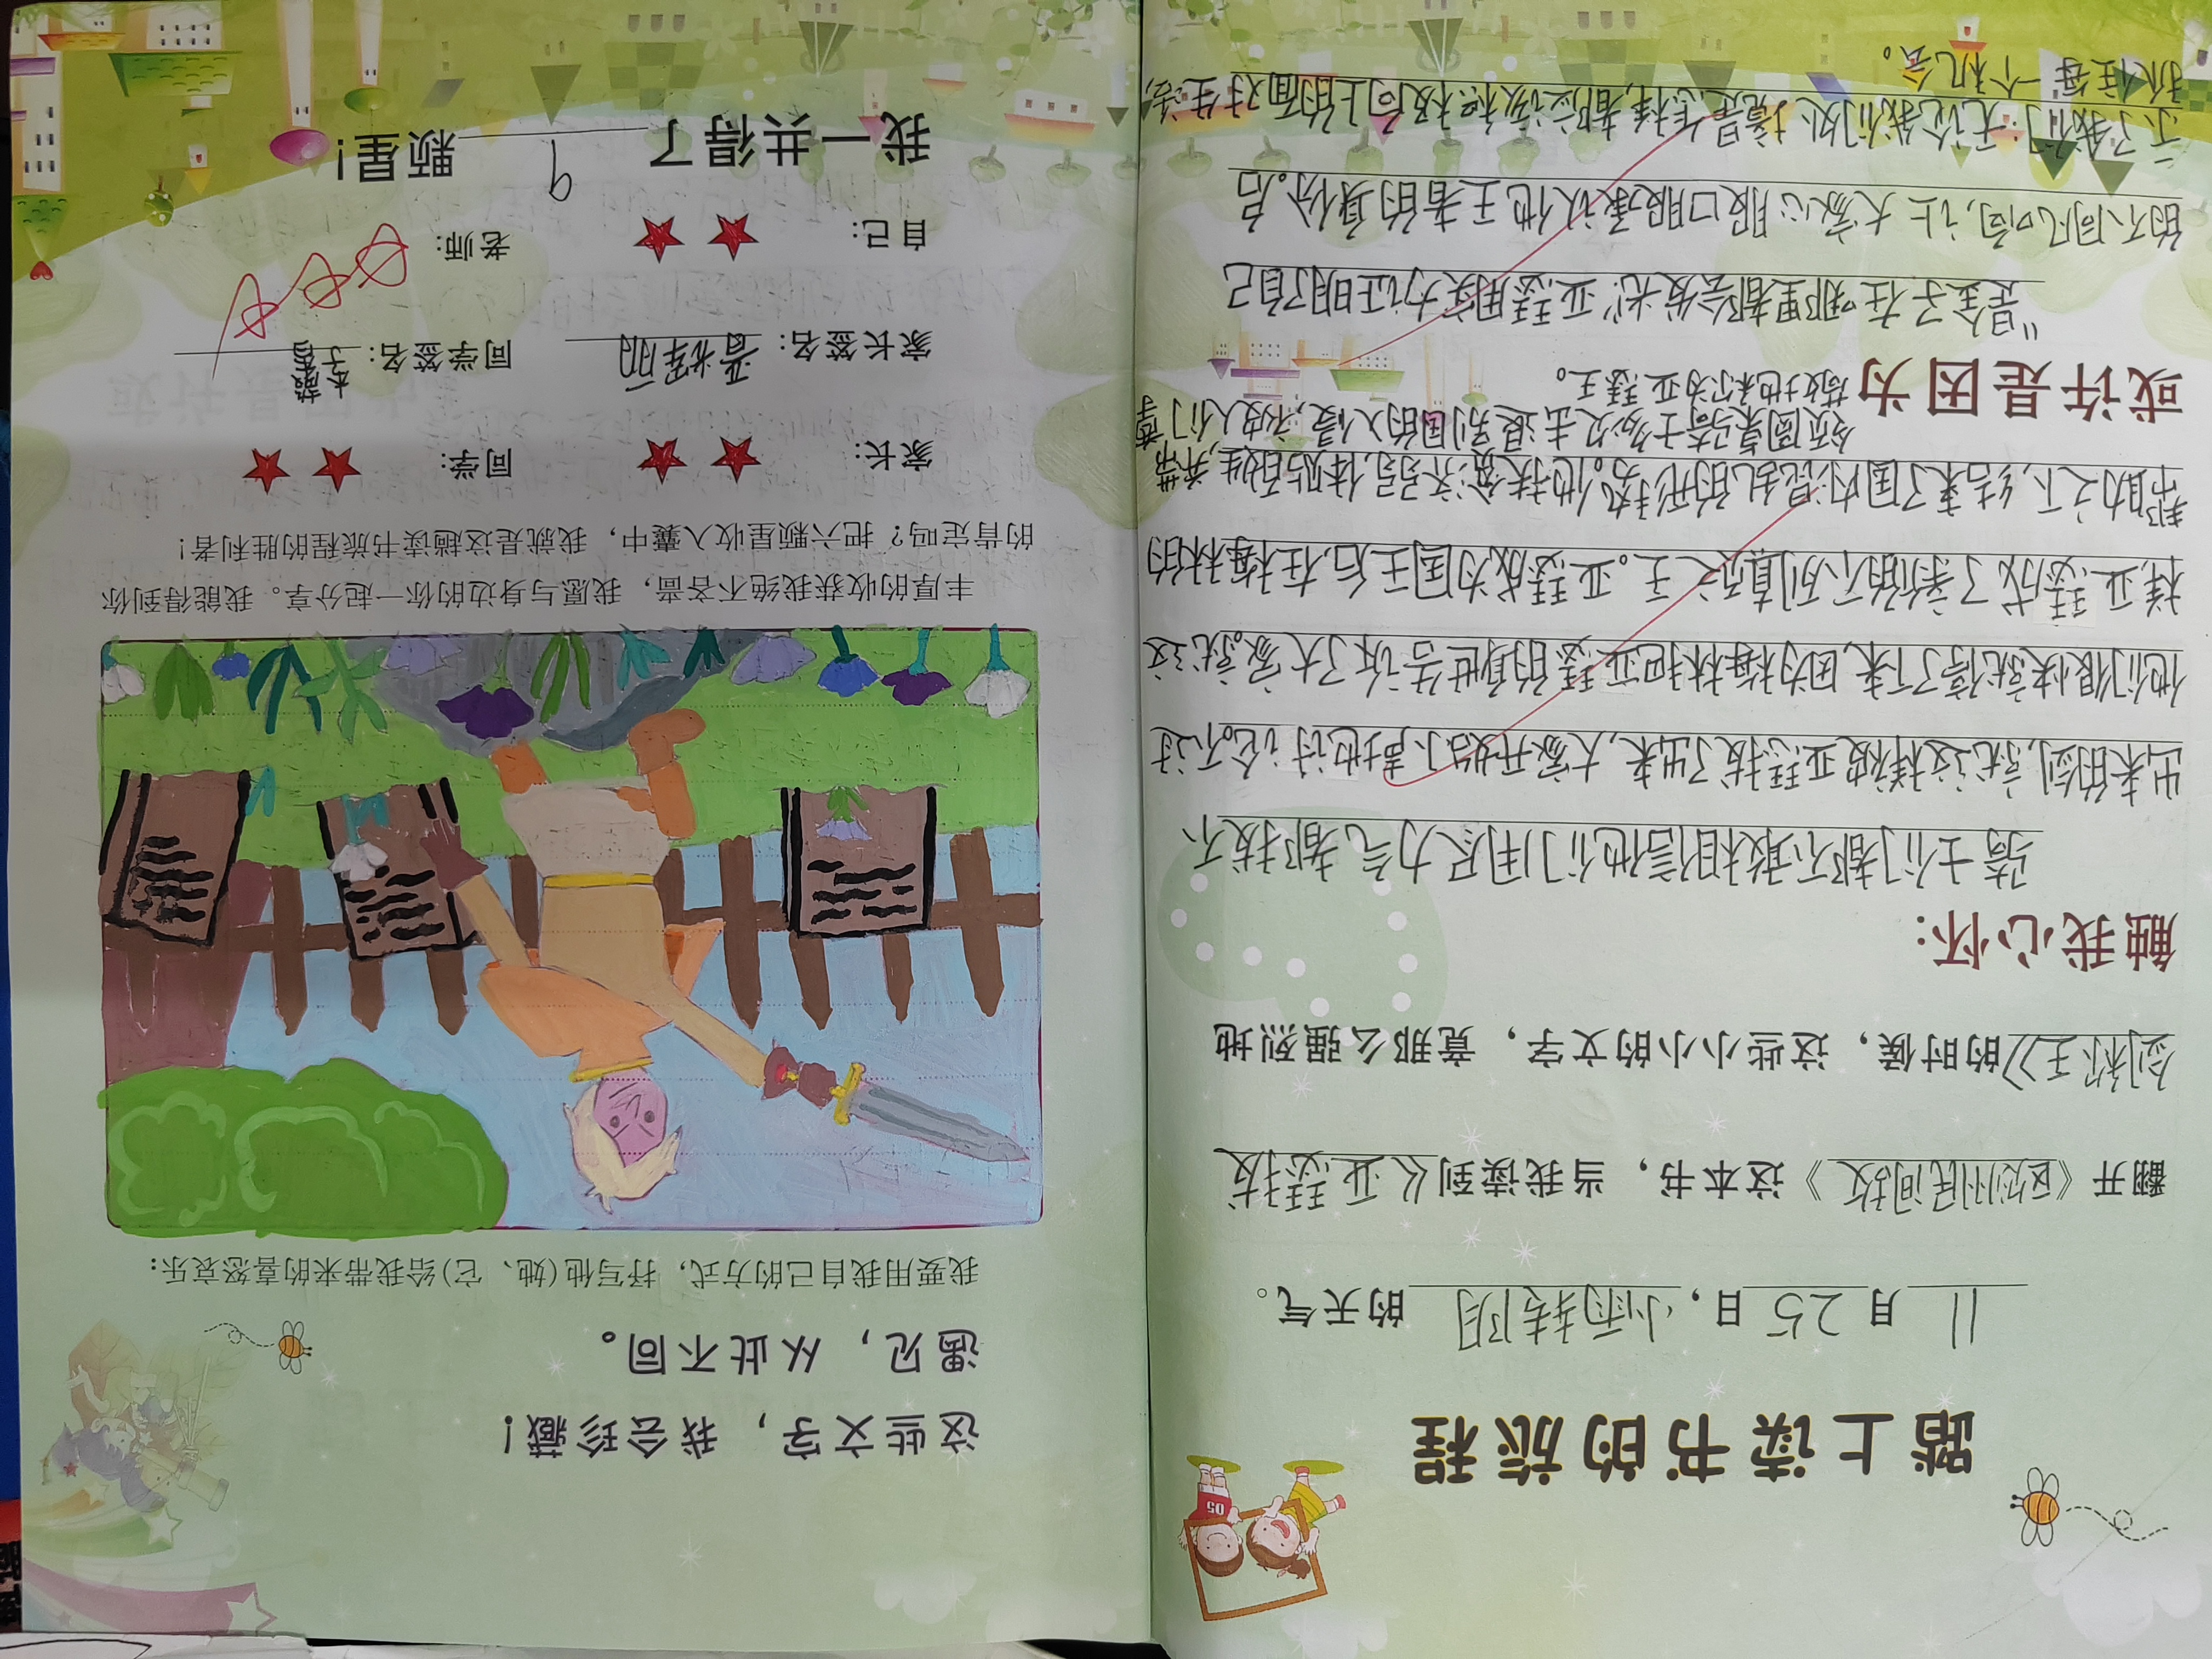 踏上读书的旅程
11月25日，小雨转阴的天气。
翻开《欧洲民间故》这本书，当我读到《亚瑟拔
剑称王》的时候，这些小小的文字，竟那么强烈地
触我心怀：
骑士们都不敢相信他们用尽力气都拔不
出来的剑，就这样被亚瑟拔了出来，大家开始小声地讨论。不过
他们很快就停了下来，因为梅林把亚瑟的身世告诉了大家。就这
样，亚瑟成了亲的不列颠之王。亚瑟成为国王后，在梅林的
帮助之下，结束了国内混乱的形势。他扶贫济弱，体贴百姓，并带
领圆桌骑士多次击退别国的入侵，被人们尊
敬地称为亚瑟王。
或许是因为
“是金子在哪里都会发光”亚瑟用实力证明了自己
的不同凡响，让大家心服口服承认他王者的身份。启
示了我们：无论我们处境是怎样，都应该积极向上的面对生活，
抓住每一个机会。
这些文字，我会珍藏！
遇见，从此不同。
我要用我自己的方式，抒写他(她、它)给我带来的喜怒哀乐：
丰厚的收获我绝不吝啬，我愿与身边的你一起分享。我能得到你
的肯定吗？把六颗星收入囊中，我就是这趟读书旅程的胜利者！
家长： 同学：
家长签名： 同学签名：
自己： 老师：
我一共得了 9 颗星！
05